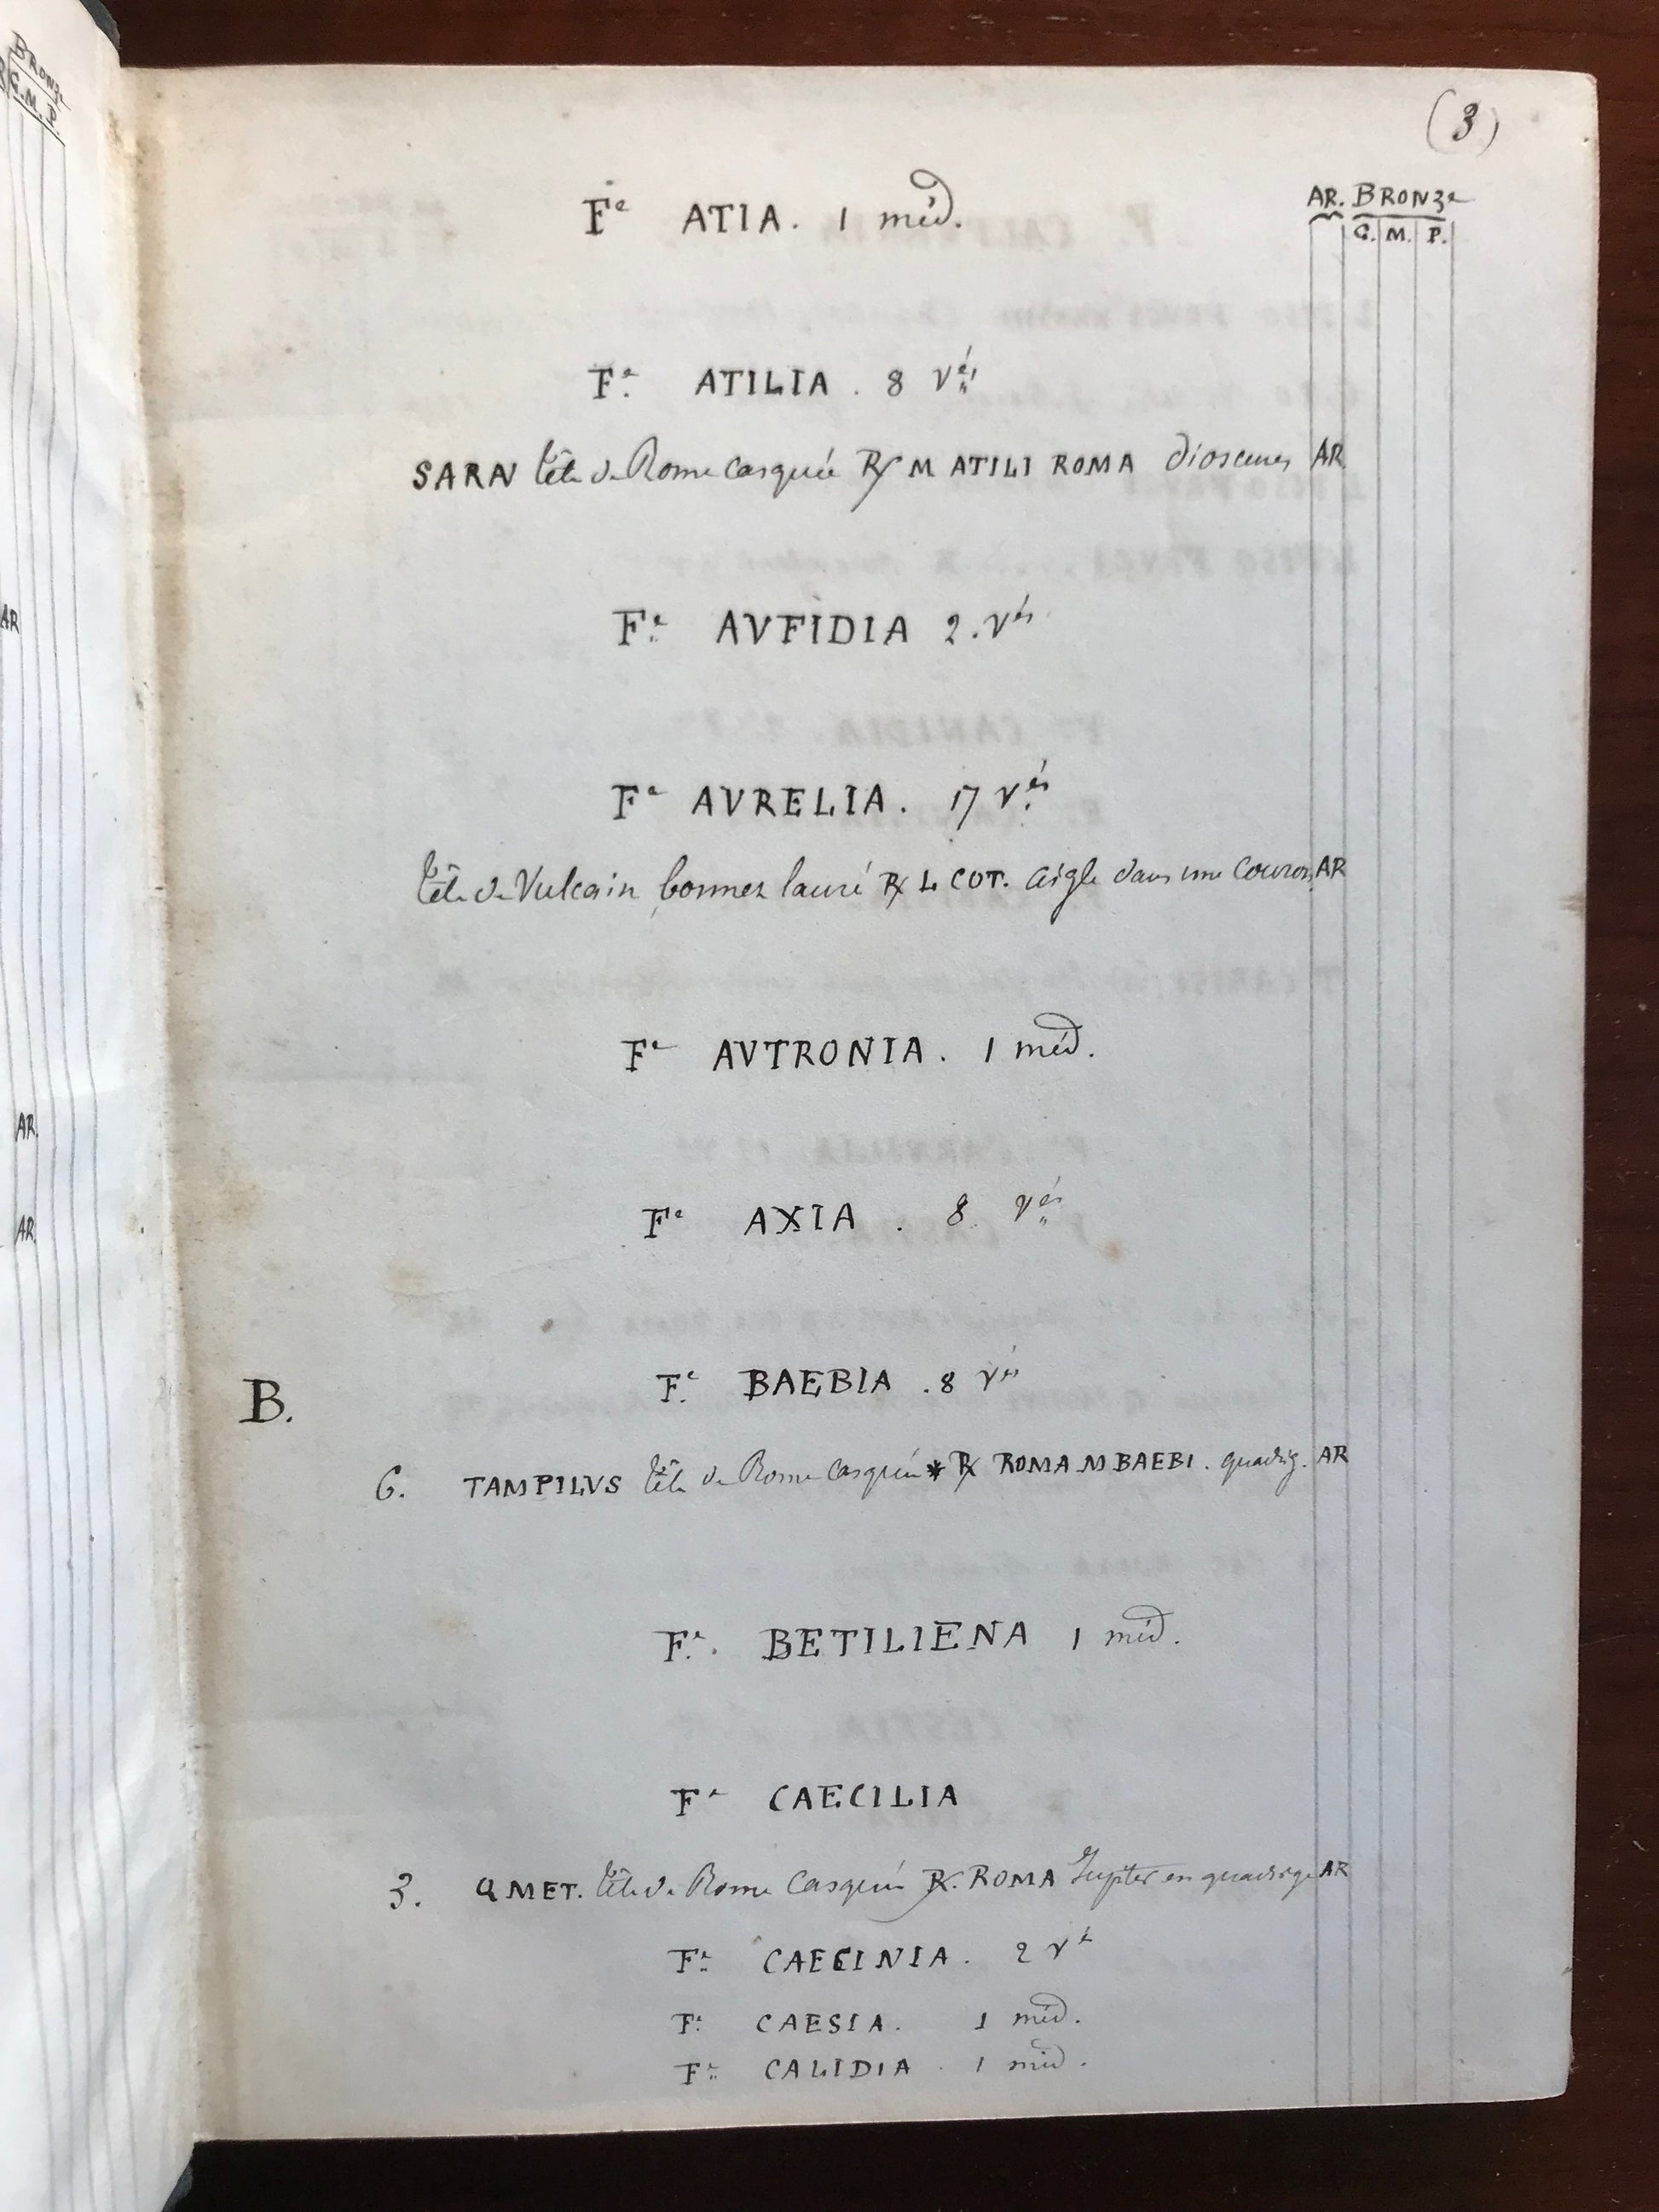 BRONZe
G. M. P.
(3)
AR. BRONZe
G. M. P.
Fe ATIA. 1 méd.
Fe ATILIA. 8 vés
SARAN tête de Rome casquée R/ M ATILI ROMA dioscures AR
AR
Fe AVFIDIA 2. vés
Fe AVRELIA. 17 vés
tête de Vulcain, bonnet lauré R/ L COT. aigle dans une couron. AR
Fe AVTRONIA. 1 méd.
AR.
Fe AXIA. 8 vés
AR.
B. Fe BAEBIA. 8 vés
6. TAMPILVS tête de Rome casquée * R/ ROMA M BAEBI. quadrig. AR
Fe. BETILIENA 1 méd.
Fe CAECILIA
3. Q MET. tête de Rome casquée R/. ROMA Jupiter en quadrige AR
Fe CAECINIA. 2 vés
Fe CAESIA. 1 méd.
Fe CALIDIA. 1 méd.